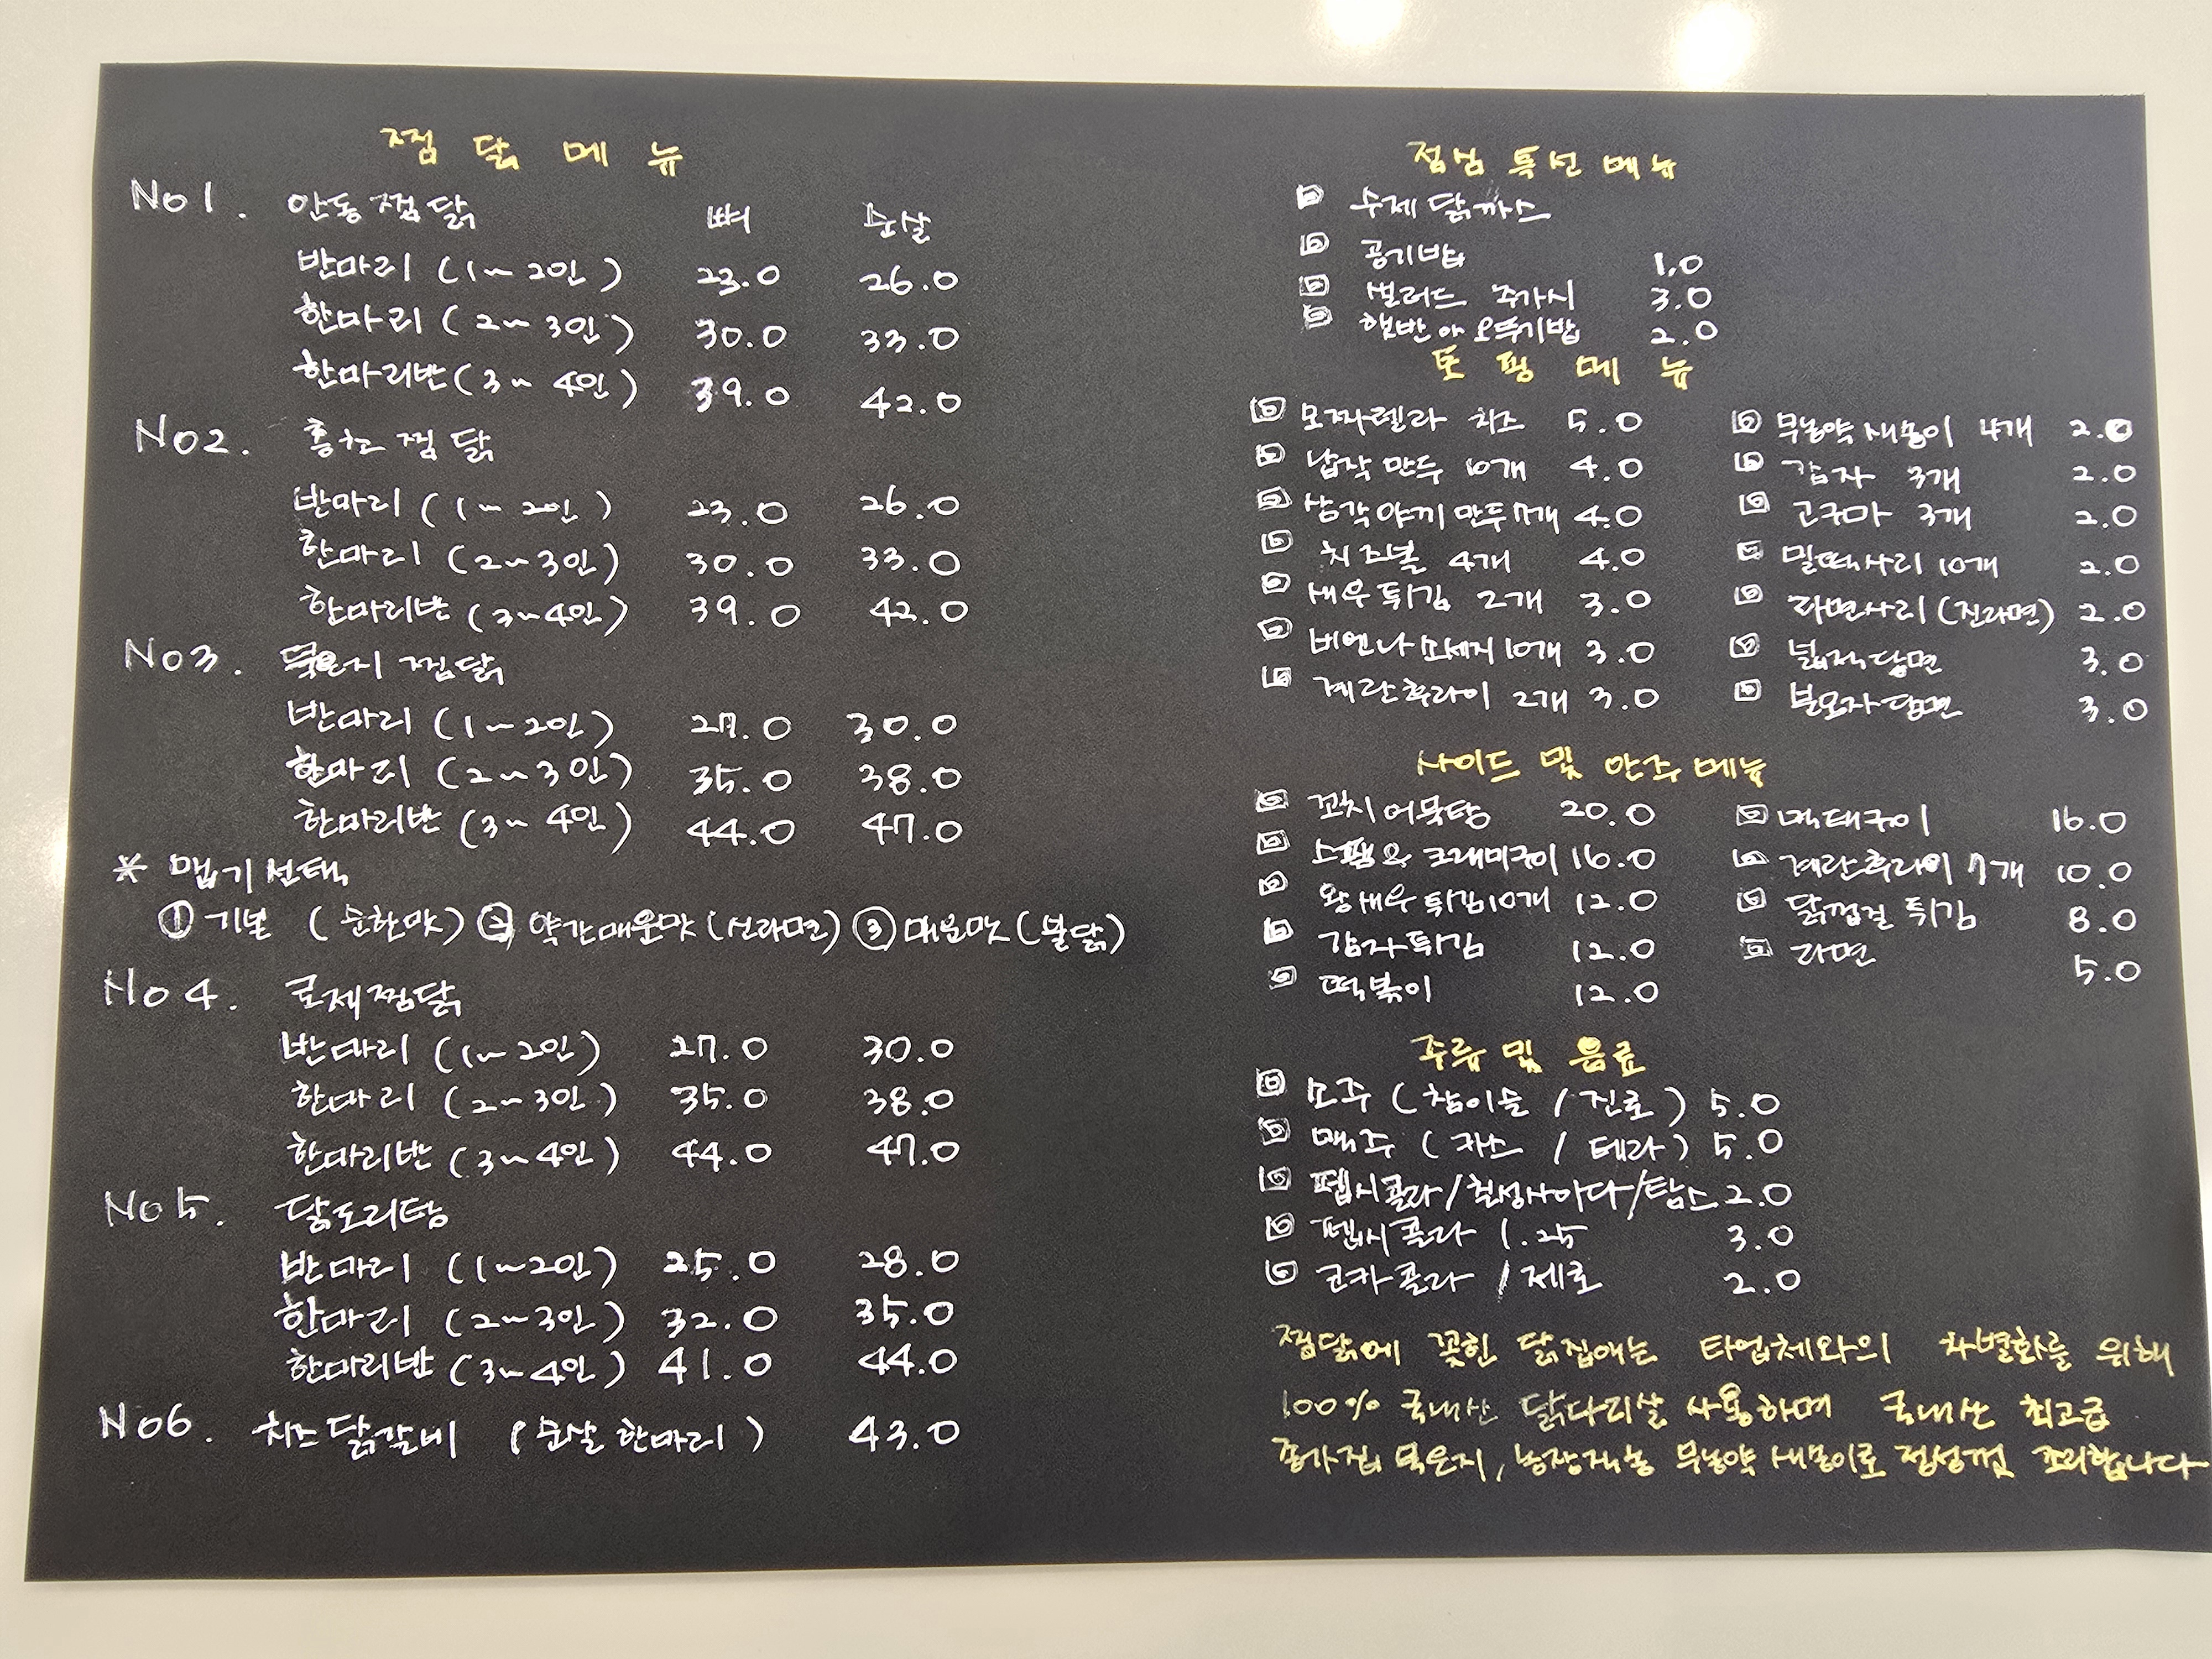 찜 닭 메 뉴
No 1. 안동찜닭 뼈 순살
반마리 (1~2인) 23.0 26.0
한마리 (2~3인) 30.0 33.0
한마리반 (3~4인) 39.0 42.0
No 2. 홍천찜닭
반마리 (1~2인) 23.0 26.0
한마리 (2~3인) 30.0 33.0
한마리반 (3~4인) 39.0 42.0
No 3. 묵은지 찜닭
반마리 (1~2인) 27.0 30.0
한마리 (2~3인) 35.0 38.0
한마리반 (3~4인) 44.0 47.0
* 맵기선택
① 기본 (순한맛) ② 약간매운맛 (신라면) ③ 매운맛 (불닭)
No 4. 로제찜닭
반마리 (1~2인) 27.0 30.0
한마리 (2~3인) 35.0 38.0
한마리반 (3~4인) 44.0 47.0
No 5. 닭도리탕
반마리 (1~2인) 25.0 28.0
한마리 (2~3인) 32.0 35.0
한마리반 (3~4인) 41.0 44.0
No 6. 치즈닭갈비 (순살 한마리) 43.0
점심 특선 메뉴
수제 닭까스
공기밥 1.0
샐러드 추가시 3.0
햇반 아 오뚜기밥 2.0
토 핑 메 뉴
모짜렐라 치즈 5.0
납작만두 10개 4.0
삼각야끼만두 7개 4.0
치즈볼 4개 4.0
새우튀김 2개 3.0
비엔나 소세지 10개 3.0
계란후라이 2개 3.0
무농약 새송이 4개 2.0
감자 3개 2.0
고구마 3개 2.0
밀떡사리 10개 2.0
라면사리 (진라면) 2.0
넓적당면 3.0
분모자당면 3.0
사이드 및 안주 메뉴
꼬치어묵탕 20.0
스팸 & 크래미구이 16.0
왕새우튀김 10개 12.0
감자튀김 12.0
떡볶이 12.0
먹태구이 16.0
계란후라이 7개 10.0
닭껍질 튀김 8.0
라면 5.0
주류 및 음료
소주 (참이슬 / 진로) 5.0
맥주 (카스 / 테라) 5.0
펩시콜라/칠성사이다/탐스 2.0
펩시콜라 1.25 3.0
코카콜라 / 제로 2.0
찜닭에 꽂힌 닭집에는 타업체와의 차별화를 위해
100% 국내산 닭다리살 사용하며 국내산 최고급
종가집 묵은지, 농장직송 무농약 새송이로 정성껏 조리합니다